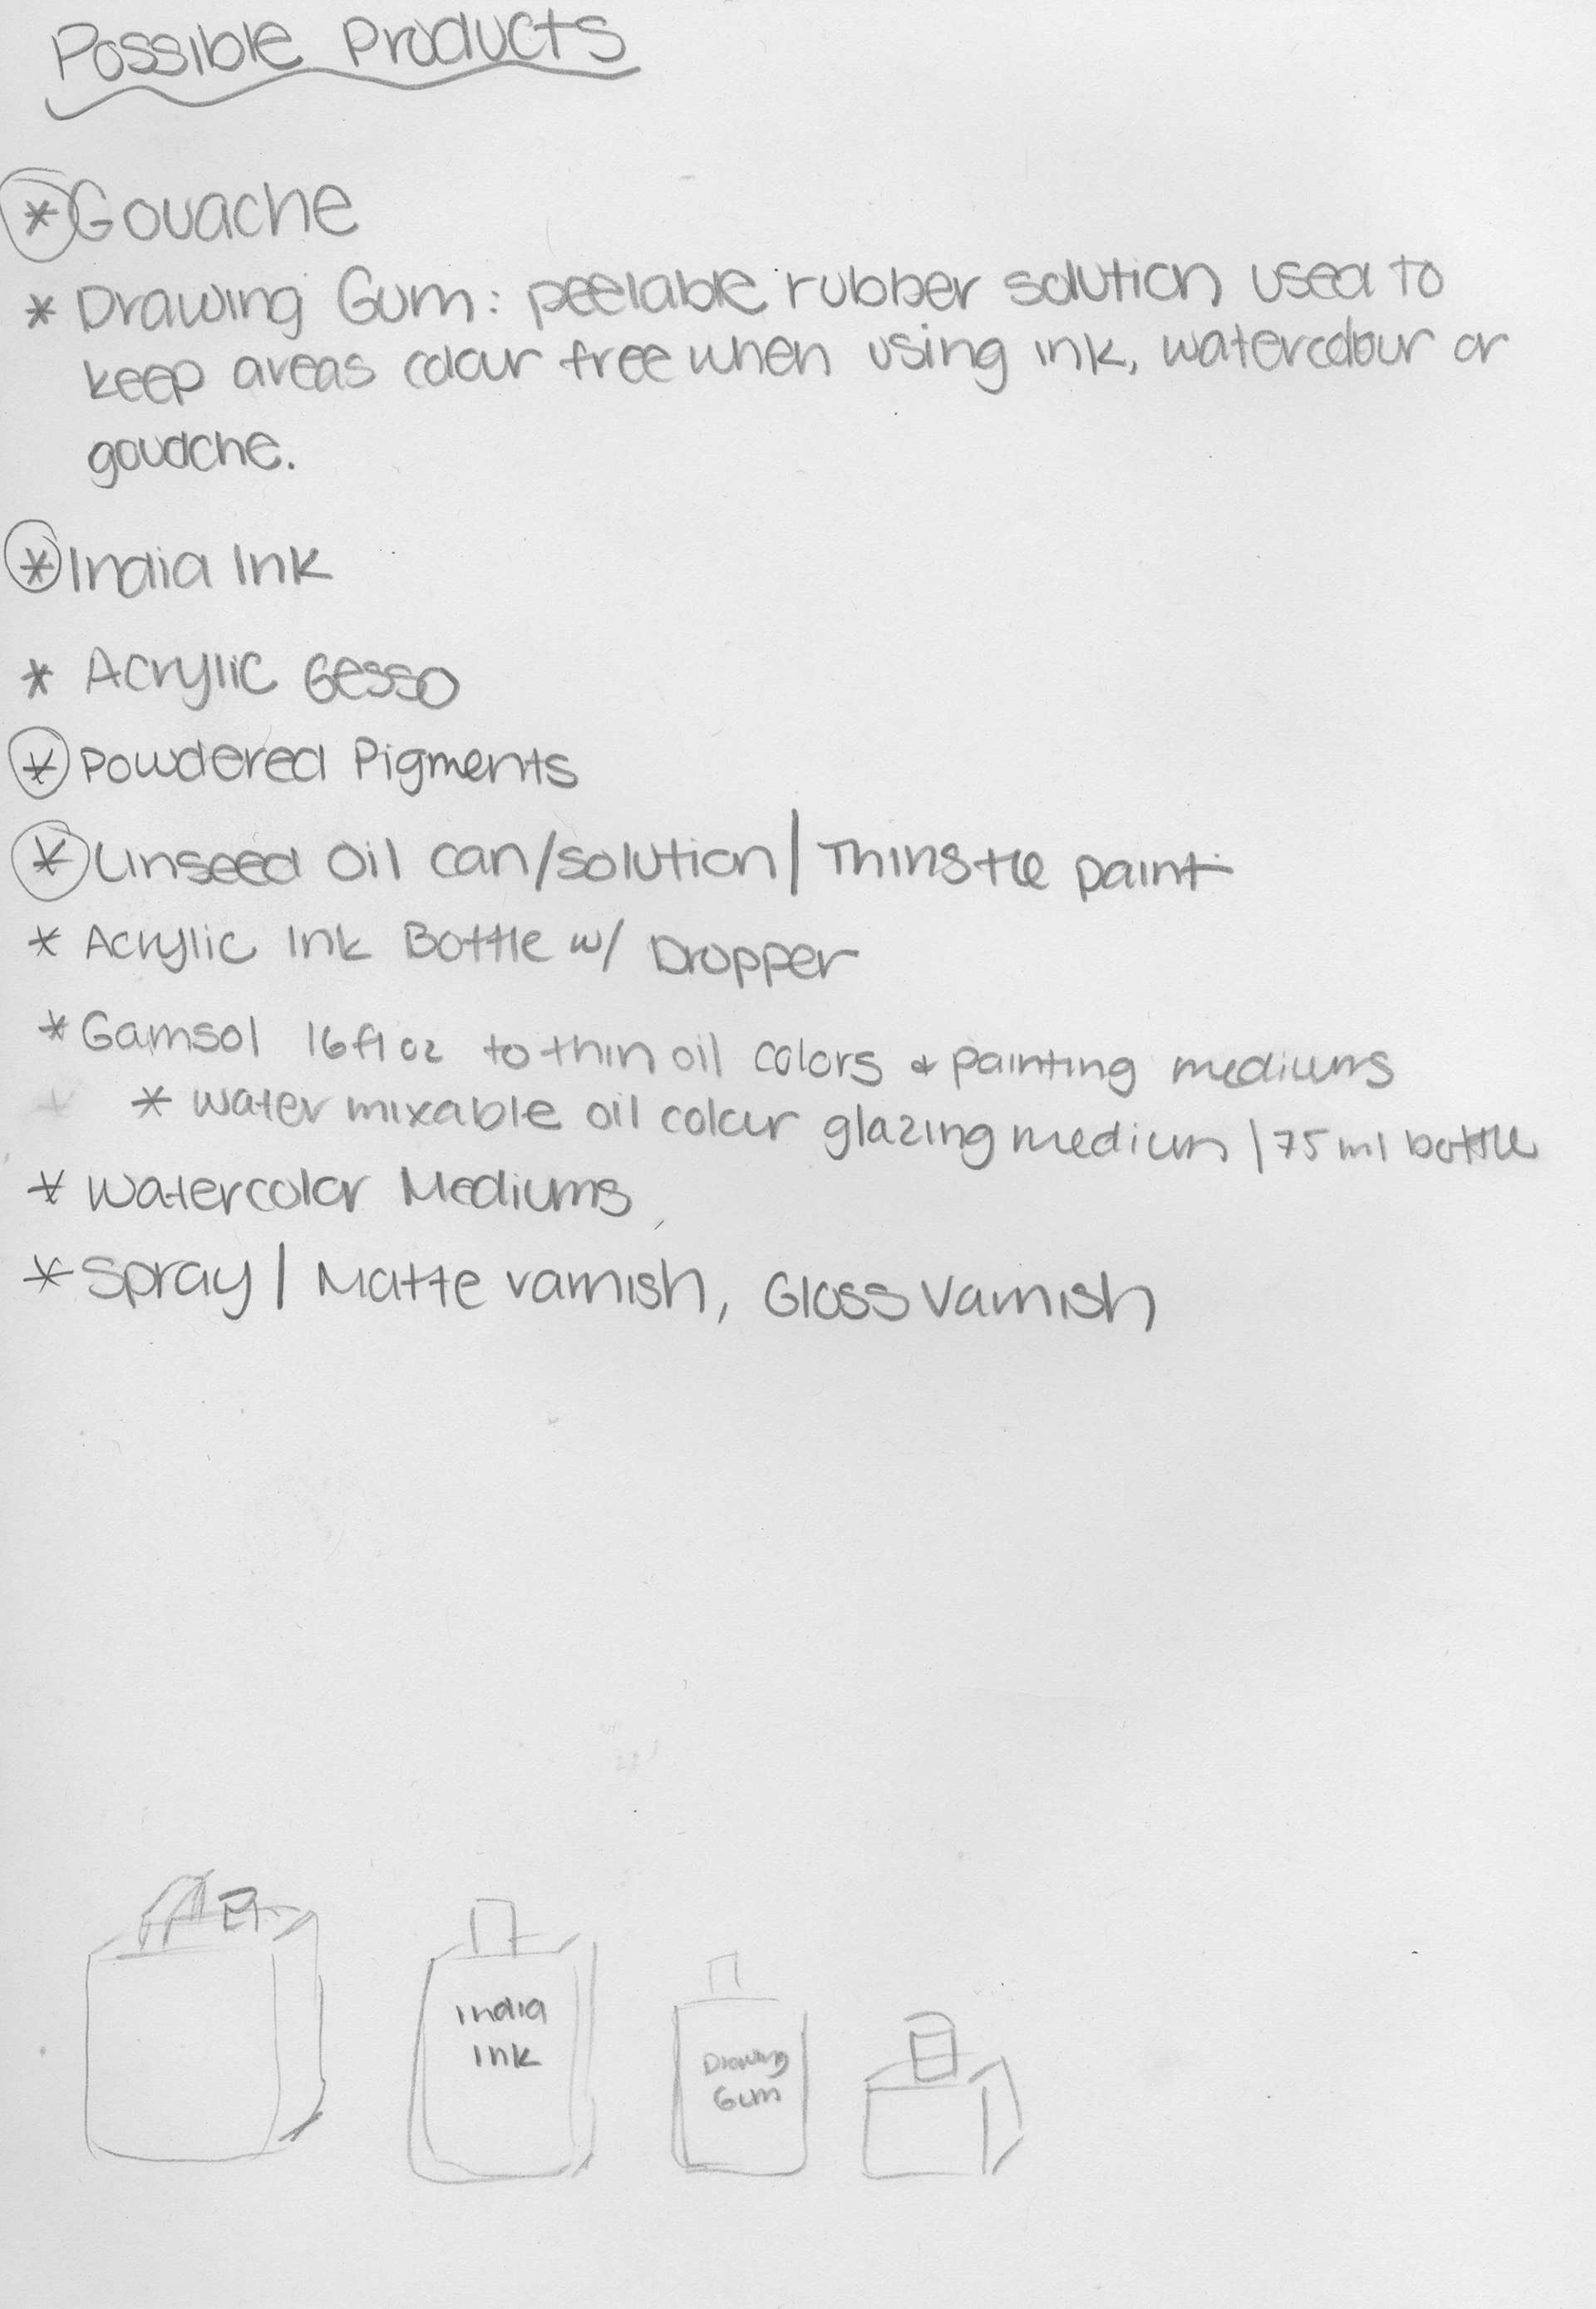 Possible Products
* Gouache
* Drawing Gum: peelable rubber solution used to
keep areas colour free when using ink, watercolour or
gouache.
* India Ink
* Acrylic Gesso
* Powdered Pigments
* Linseed Oil can/solution | Thins the paint
* Acrylic Ink Bottle w/ Dropper
* Gamsol 16 fl oz to thin oil colors & painting mediums
* Water mixable oil colour glazing medium | 75 ml bottle
* Watercolor Mediums
* Spray | Matte varnish, Gloss Varnish
India
Ink
Drawing
Gum